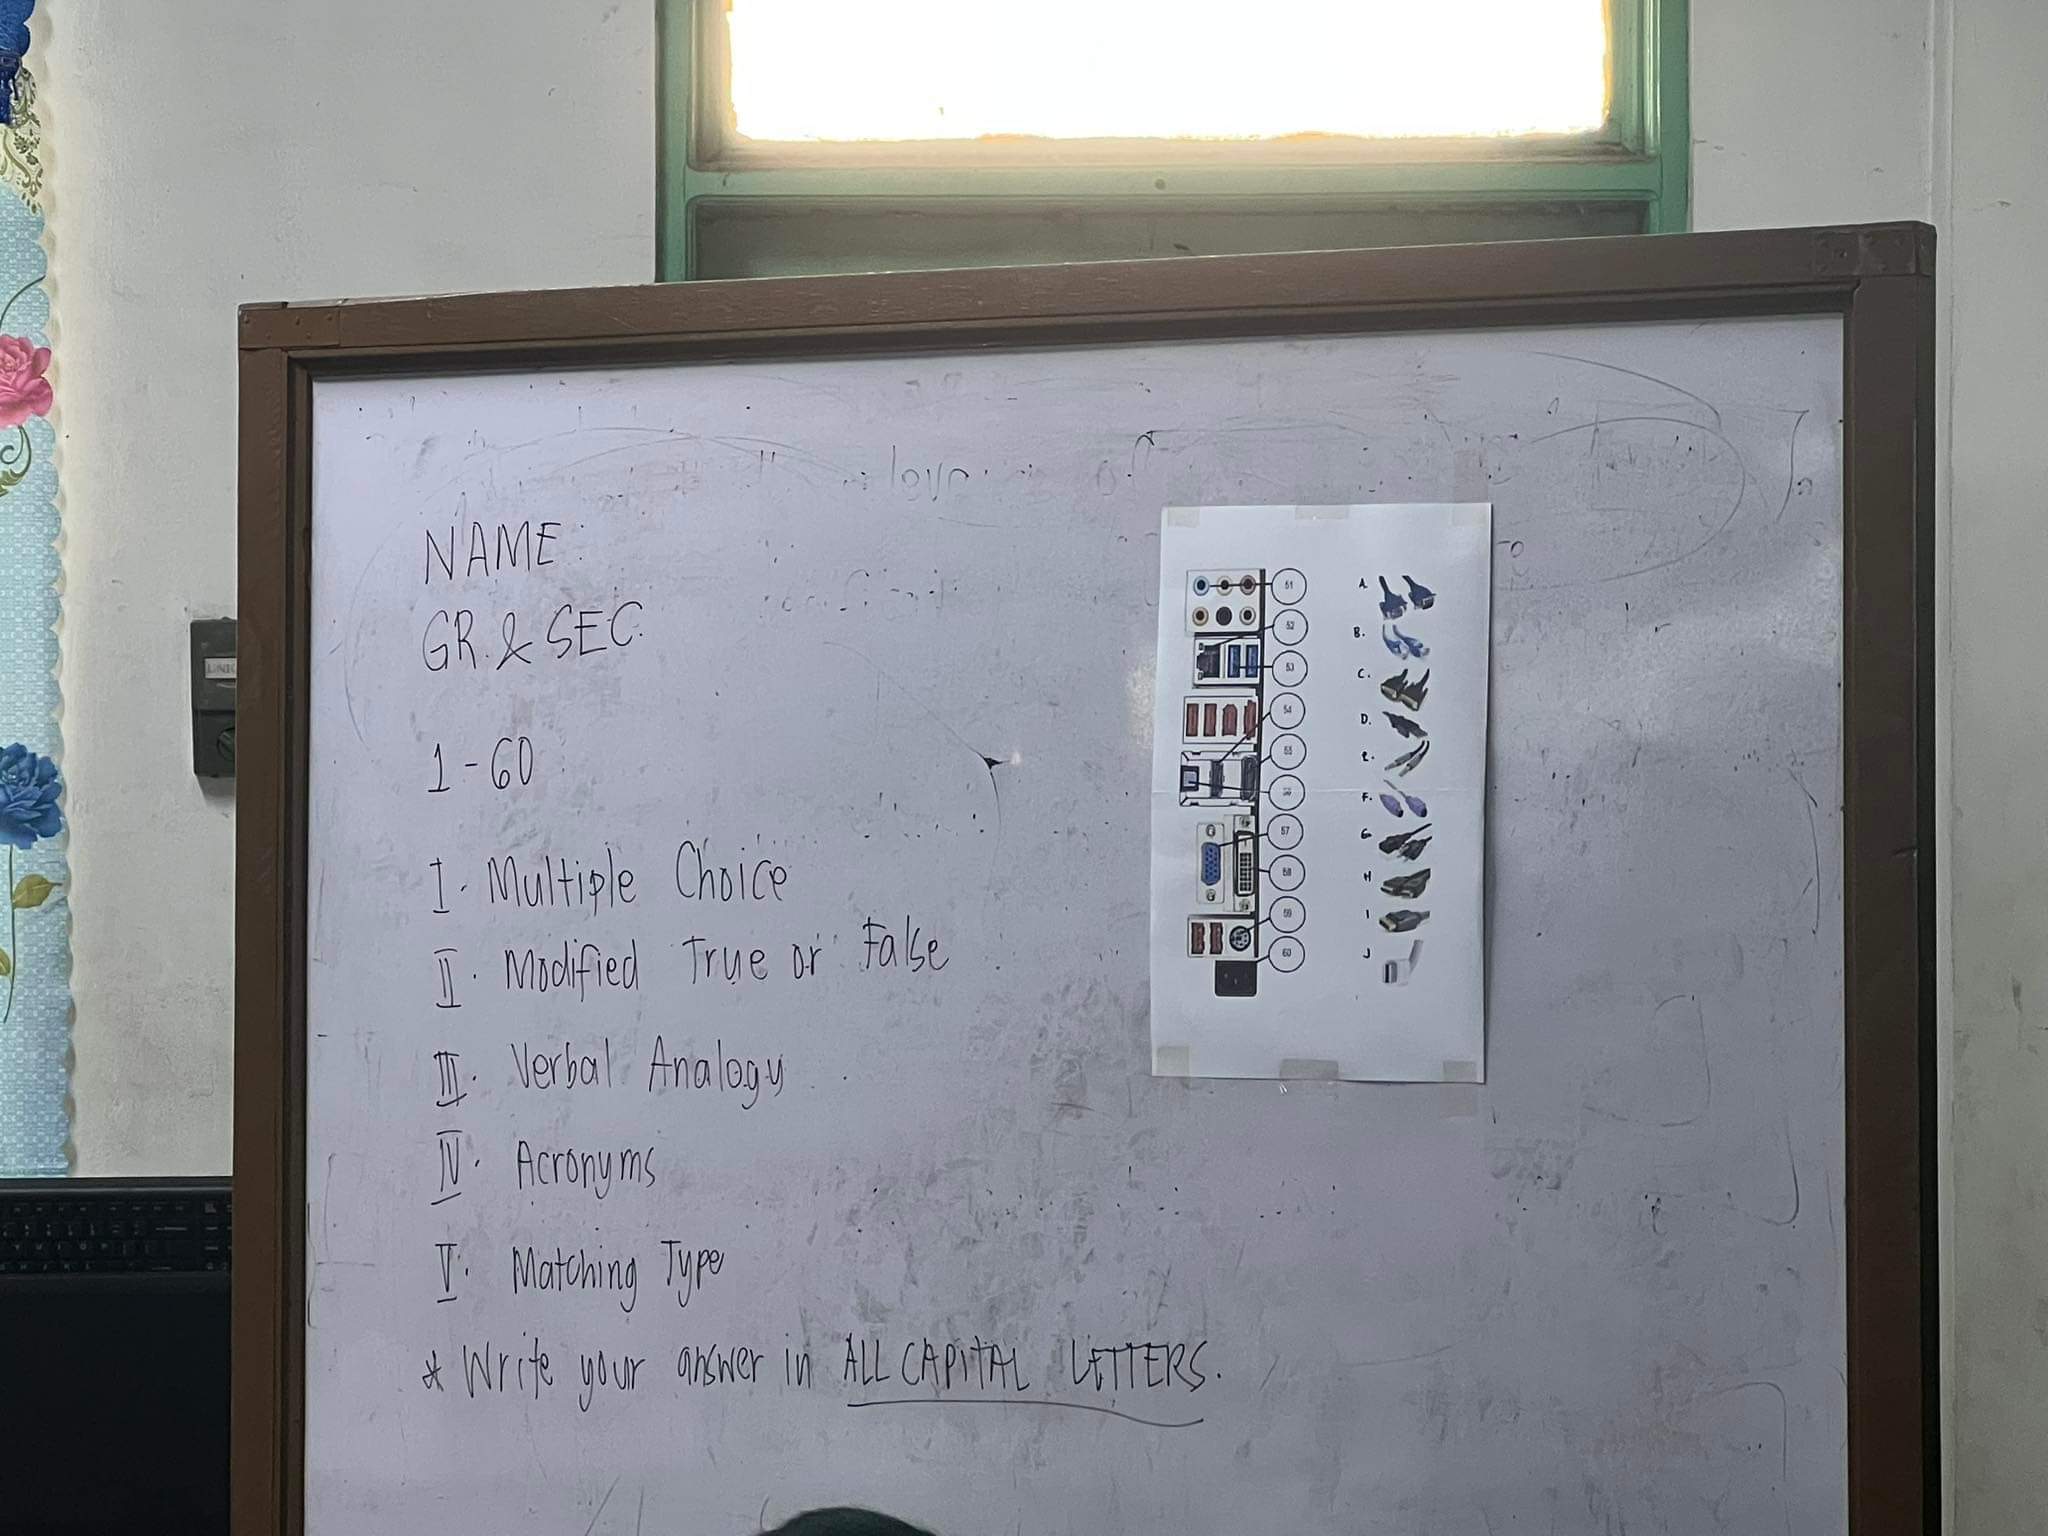 NAME:
GR. & SEC.
1 - 60
I. Multiple Choice
II. Modified True or False
III. Verbal Analogy
IV. Acronyms
V. Matching Type
* Write your answer in ALL CAPITAL LETTERS.
51
52
53
54
55
56
57
58
59
60
A.
B.
C.
D.
E.
F.
G.
H
I
J